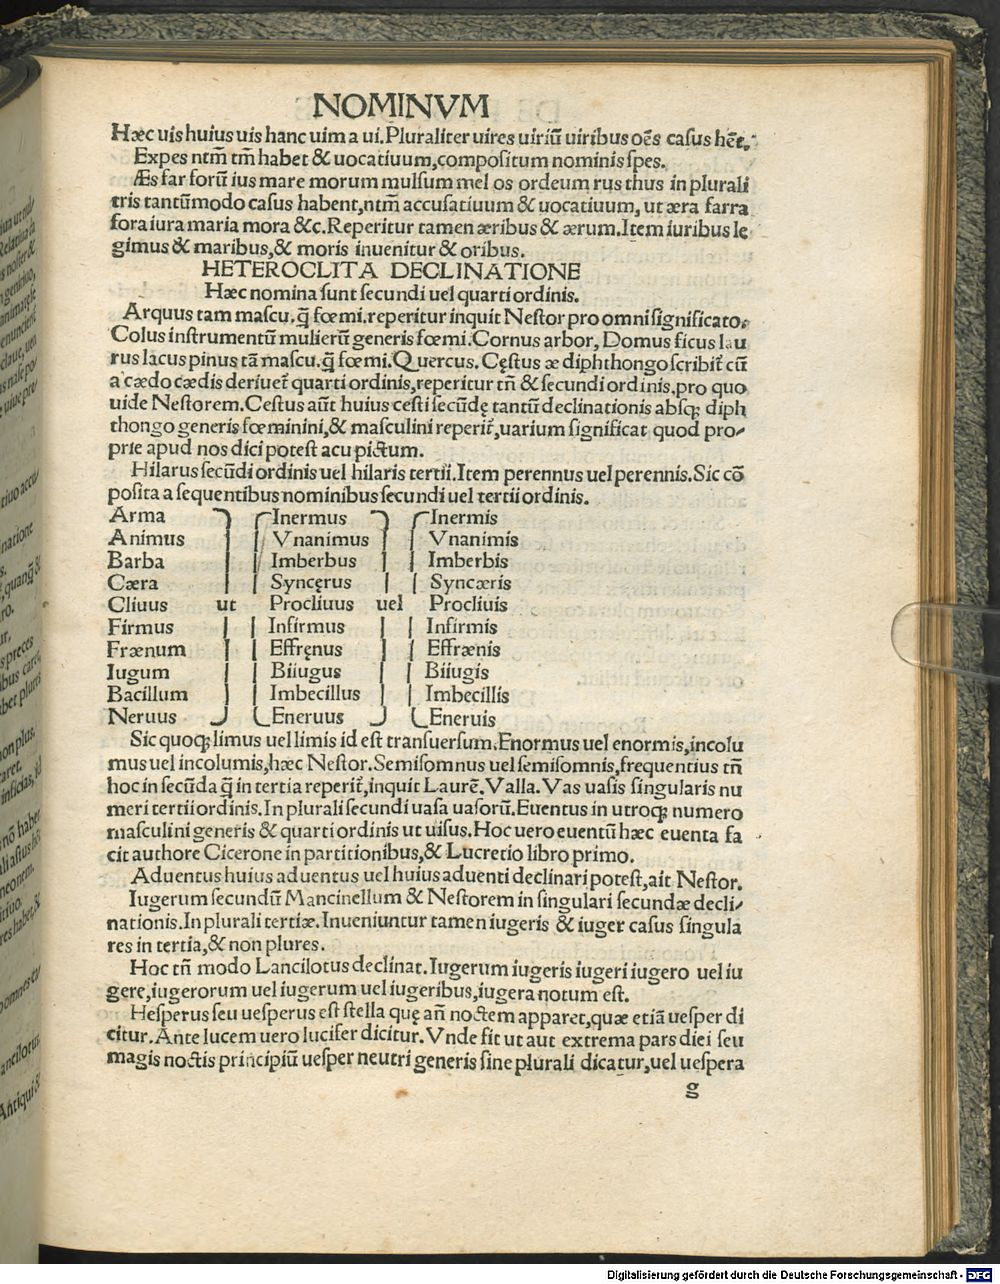 NOMINVM
Hæc uis huius uis hanc uim a ui. Pluraliter uires uiriū uiribus oēs casus hēt.
Expes ntm̄ tm̄ habet & uocatiuum, compositum nominis spes.
Æs far forū ius mare morum mulsum mel os ordeum rus thus in plurali
tris tantūmodo casus habent, ntm̄ accusatiuum & uocatiuum, ut æra farra
fora iura maria mora &c. Reperitur tamen æribus & ærum. Item iuribus le
gimus & maribus, & moris inuenitur & oribus.
HETEROCLITA DECLINATIONE
Hæc nomina sunt secundi uel quarti ordinis.
Arquus tam mascu. q̄ fœmi. reperitur inquit Nestor pro omni significato.
Colus instrumentū mulierū generis fœmi. Cornus arbor, Domus ficus lau
rus lacus pinus tā mascu. q̄ fœmi. Quercus. Cęstus æ diphthongo scribit̄ cū
a cædo cædis deriuet̄ quarti ordinis, reperitur tn̄ & secundi ordinis, pro quo
uide Nestorem. Cestus aūt huius cesti secūdę tantū declinationis absqꝫ diph
thongo generis fœminini, & masculini reperit̄, uarium significat quod pro/
prie apud nos dici potest acu pictum.
Hilarus secūdi ordinis uel hilaris tertii. Item perennus uel perennis. Sic cō
posita a sequentibus nominibus secundi uel tertii ordinis.
Arma Inermus Inermis
Animus Vnanimus Vnanimis
Barba Imberbus Imberbis
Cæra Syncęrus Syncæris
Cliuus ut Procliuus uel Procliuis
Firmus Infirmus Infirmis
Frænum Effręnus Effrænis
Iugum Biiugus Biiugis
Bacillum Imbecillus Imbecillis
Neruus Eneruus Eneruis
Sic quoqꝫ limus uel limis id est transuersum. Enormus uel enormis, incolu
mus uel incolumis, hæc Nestor. Semisomnus uel semisomnis, frequentius tn̄
hoc in secūda q̄ in tertia reperit̄, inquit Laurē. Valla. Vas uasis singularis nu
meri tertii ordinis. In plurali secundi uasa uasorū. Euentus in utroqꝫ numero
masculini generis & quarti ordinis ut uisus. Hoc uero euentū hæc euenta fa
cit authore Cicerone in partitionibus, & Lucretio libro primo.
Aduentus huius aduentus uel huius aduenti declinari potest, ait Nestor.
Iugerum secundū Mancinellum & Nestorem in singulari secundæ decli/
nationis. In plurali tertiæ. Inueniuntur tamen iugeris & iuger casus singula
res in tertia, & non plures.
Hoc tn̄ modo Lancilotus declinat. Iugerum iugeris iugeri iugero uel iu
gere, iugerorum uel iugerum uel iugeribus, iugera notum est.
Hesperus seu uesperus est stella quę an̄ noctem apparet, quæ etiā uesper di
citur. Ante lucem uero lucifer dicitur. Vnde fit ut aut extrema pars diei seu
magis noctis principiū uesper neutri generis sine plurali dicatur, uel uespera
g
Digitalisierung gefördert durch die Deutsche Forschungsgemeinschaft - DFG